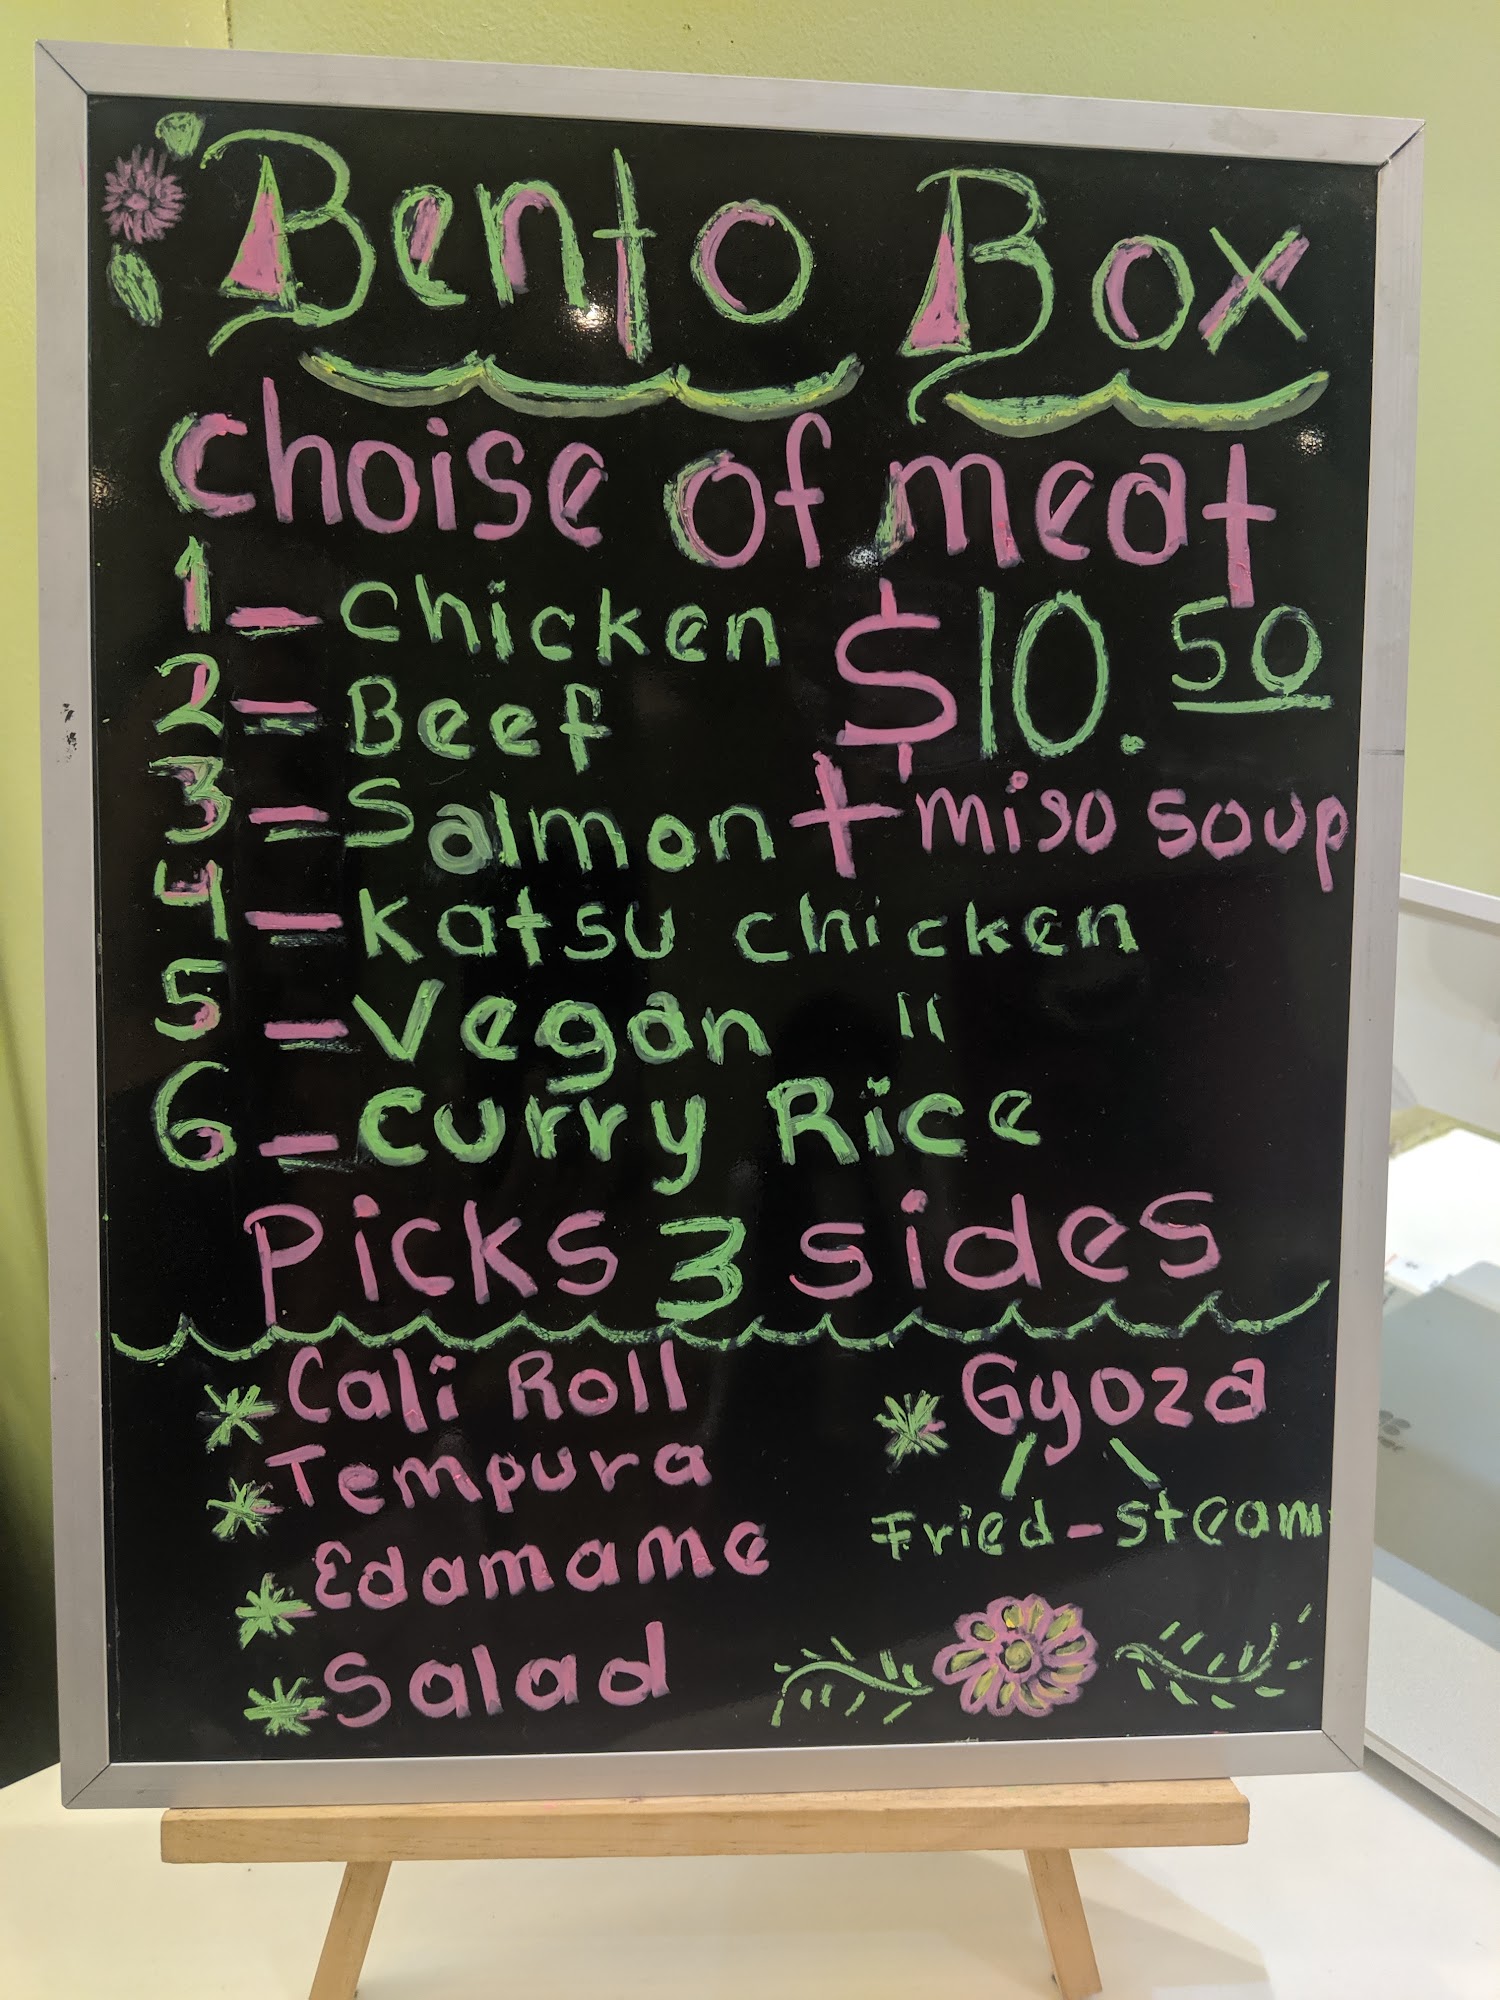 Bento Box
choise of meat
1 - chicken $10.50
2 - Beef
3 - Salmon + miso soup
4 - Katsu chicken
5 - Vegan "
6 - Curry Rice
Picks 3 sides
* Cali Roll
* Tempura
* Edamame
* Salad
* Gyoza
Fried - steam